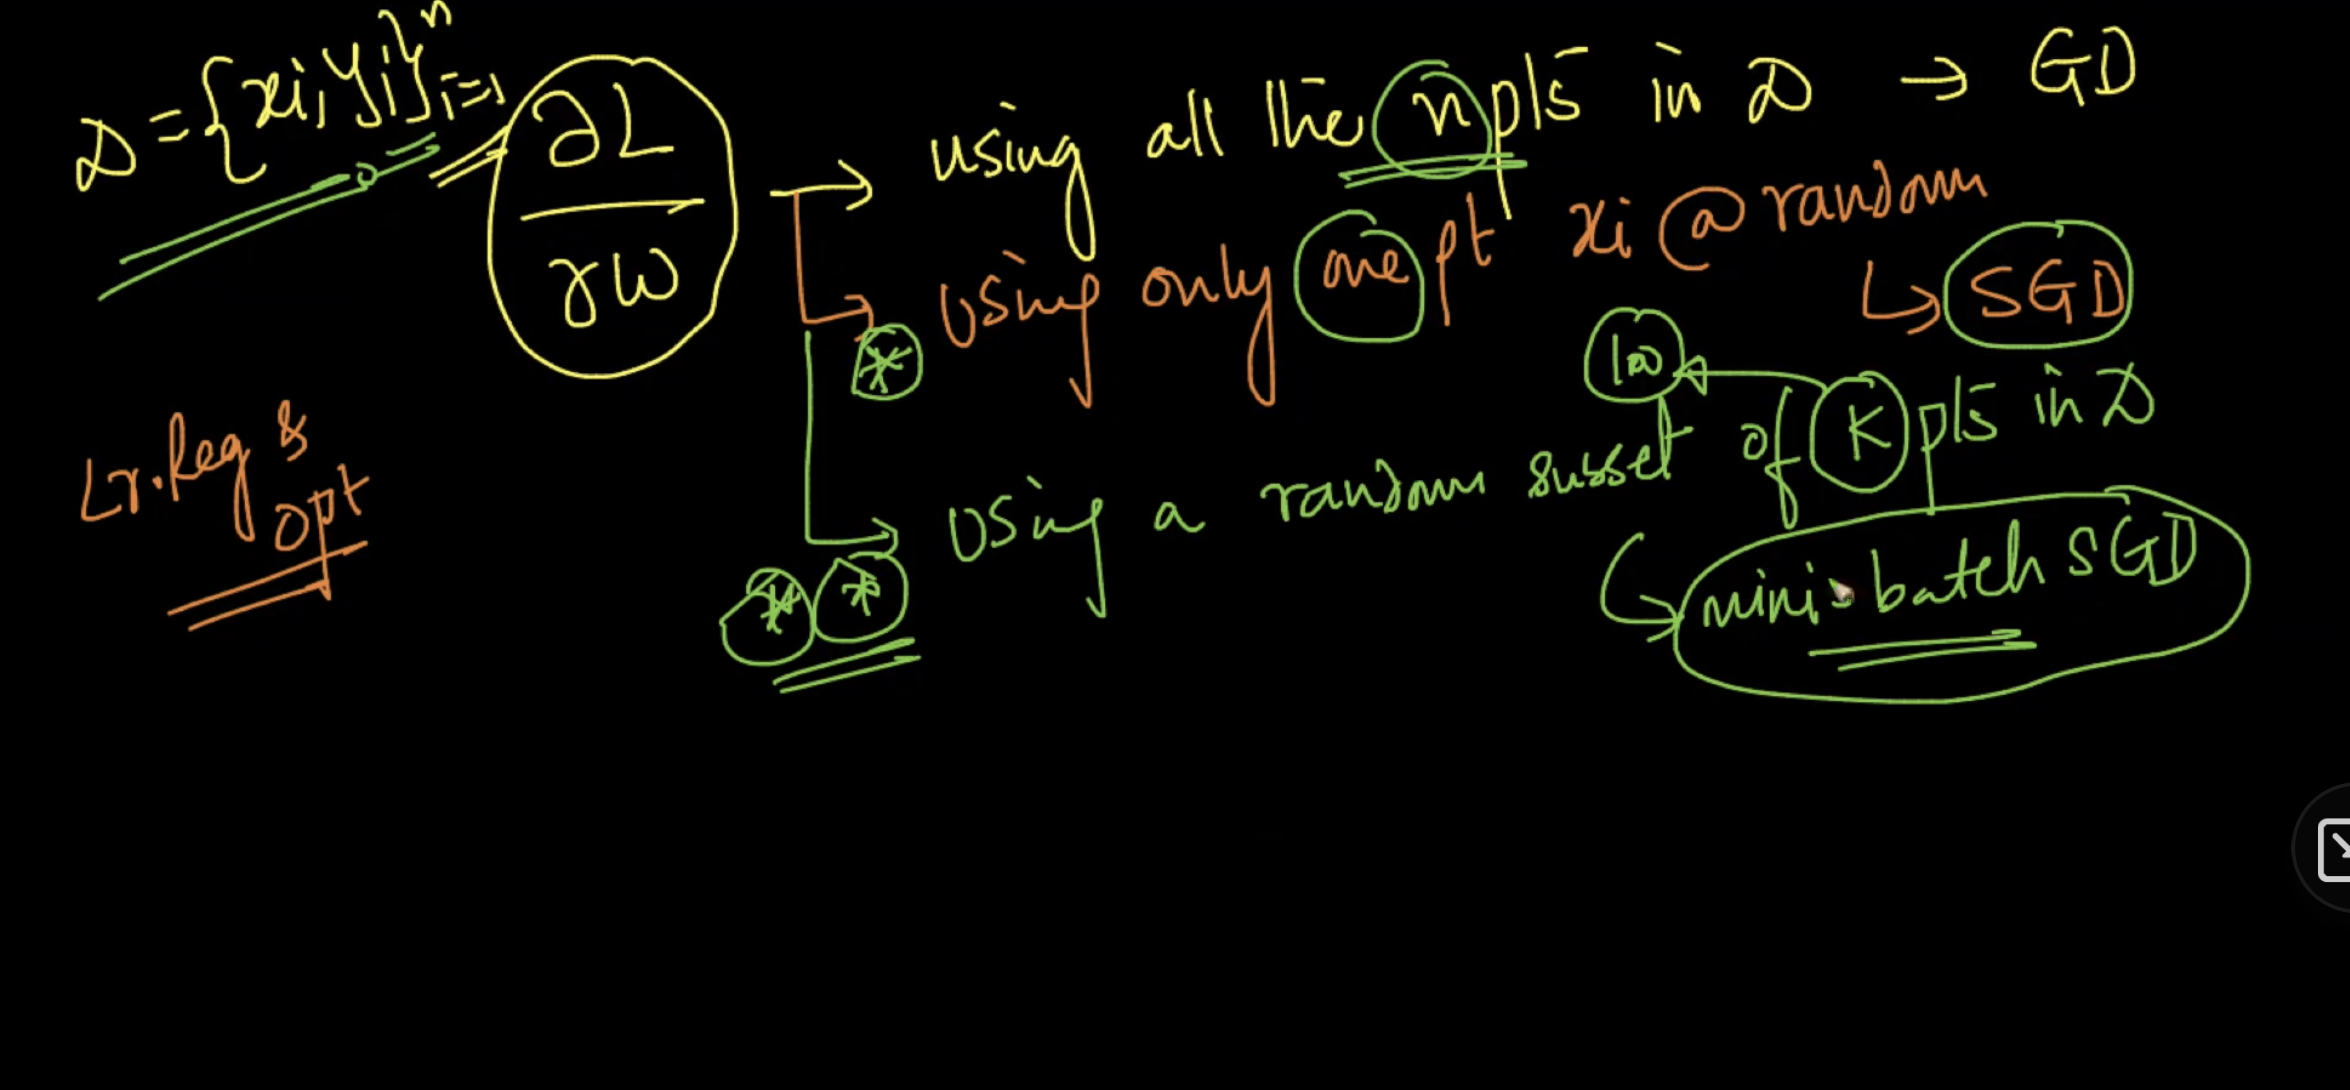 D = {xi, yi}ⁿᵢ₌₁
∂L
∂w
→ using all the n pts in D → GD
using only one pt xi @ random
↳ SGD
100
* using a random subset of K pts in D
* *
mini-batch SGD
Lr. Reg &
opt